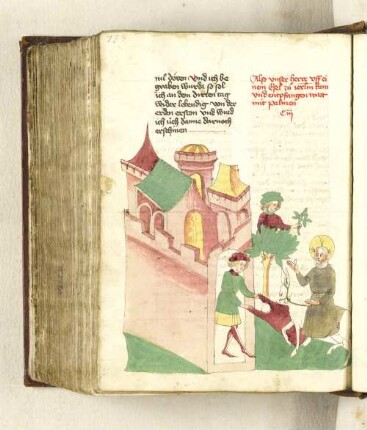 nil doten vnd ich be
graben wurde so sol
ich an dem dritten tag
wider lebendig von der
erden ersten vnd wurd
ich üch danne darnach
erschinen
Also vnser herre vff ei
nem Esel zu iherusalem kam
vnd entpfangen wart
mit palmen